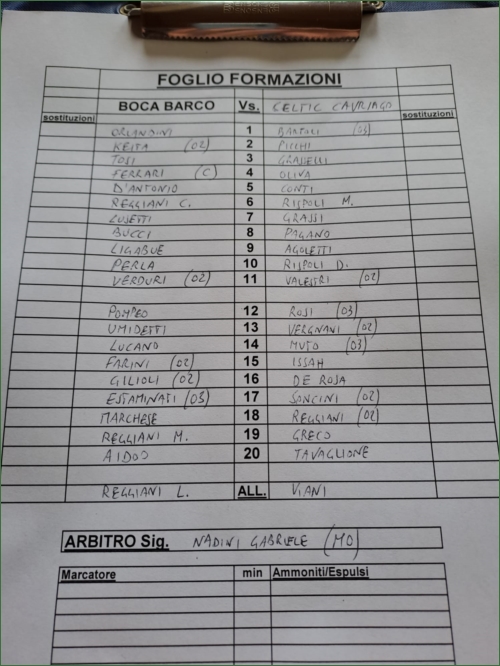 FOGLIO FORMAZIONI
BOCA BARCO Vs. CELTIC CAVRIAGO
sostituzioni sostituzioni
ORLANDINI 1 BARTOLI (03)
KEITA (02) 2 PICCHI
TOSI 3 GRASSELLI
FERRARI (C) 4 OLIVA
D'ANTONIO 5 CONTI
REGGIANI C. 6 RISPOLI M.
LUSETTI 7 GRASSI
BUCCI 8 PAGANO
LIGABUE 9 AGOLETTI
PERLA 10 RISPOLI D.
VERDURI (02) 11 VALESTRI (02)
POMPEO 12 ROSI (03)
UMIDETTI 13 VERGNANI (02)
LUCANO 14 MUTO (03)
FARINI (02) 15 ISSAH
GILIOLI (02) 16 DE ROSA
ESTAMINATI (03) 17 SONCINI (02)
MARCHESE 18 REGGIANI (02)
REGGIANI M. 19 GRECO
AIDOO 20 TAVAGLIONE
REGGIANI L. ALL. VIANI
ARBITRO Sig. NADINI GABRIELE (MO)
Marcatore min Ammoniti/Espulsi